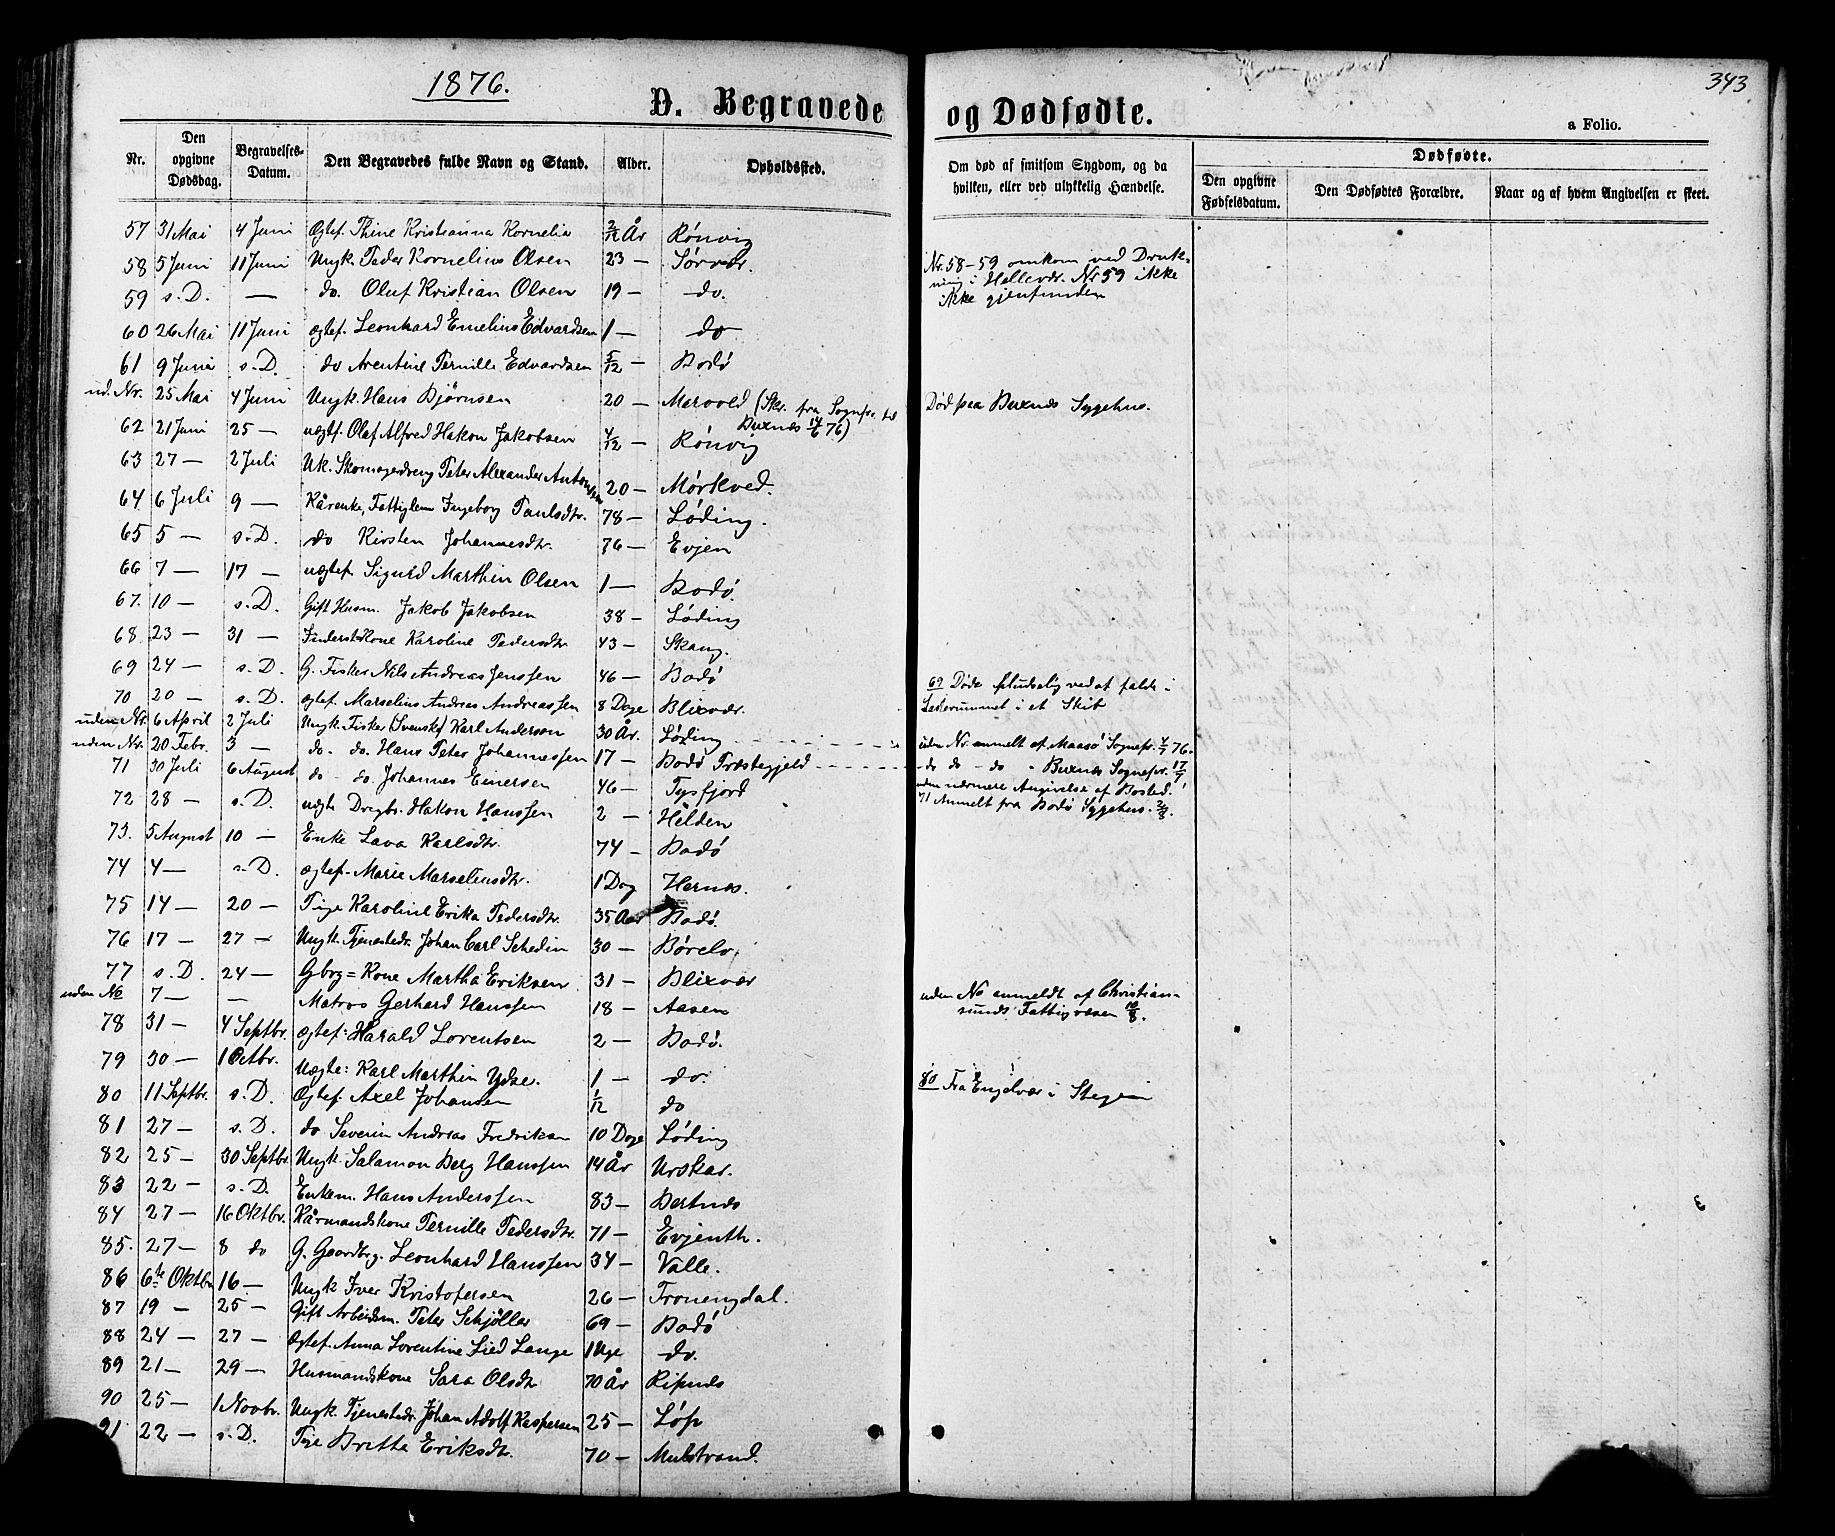 1876.
D. Begravede
Nr.
Den opgivne Dødsdag.
Begravelses-Datum.
Den Begravedes fulde Navn og Stand.
Alder.
Opholdssted.
57 31 Mai 4 Juni Ægtef. Thine Kristianna Kornelia 2/12 År Rönvig
58 5 Juni 11 Juni Ungk. Peder Kornelius Olsen 23 — Sörvær.
59 s. D. — do. Oluf Kristian Olsen 19 — do.
60 26 Mai 11 Juni ægtef. Leonhard Emelius Edvardsen 1 — do
61 9 Juni s. D. do Arentine Pernille Edvardsen 5/12 — Bodö
ud. Nr. 25 Mai 4 Juni Ungk. Hans Bjørnsen 20 — (Skr. fra Sognepr. til
Buxnæs 14/6 76)
62 21 Juni 25 — uægtef. Olaf Alfred Hakon Jakobsen 4/12 — Rönvig
63 27 — 2 Juli Uk. Skomagerdreng Peter Alexander Antonsen 20 — Mörkved.
64 6 Juli 9 — Kårenke, Fattiglem Ingeborg Paulsdtr. 78 — Löding.
65 5 — s. D. do Kirsten Johannesdtr. 76 — Evjen
66 7 — 17 — uægtef. Sigurd Marthin Olsen 1 — Bodö.
67. 10 — s. D. Gift Husm. Jakob Jakobsen 38 — Löding
68 23 — 31 — Inderstkone Karoline Pedersdtr 43 — Skaug.
69 24 — s. D. G. Fisker Nils Andreas Jenssen 46 — Bodö
70 20 — s. D. ægtef. Marselius Andreas Andreassen 8 Dage Blixvær.
uden Nr. 6 April 2 Juli Ungk. Fisker (Svensk) Karl Anderson 30 År. Löding
uden Nr. 20 Febr. 3 — do. do. Hans Peter Johannessen 17 — Bodö Præstegjeld
71 30 Juli 6 August do — do. Johannes Einersen 46 — Tysfjord
72 28 — s. D. uægte Dregb. Hakon Hanssen 2 — Hilden
73. 5 August 10 — Enke Lava Karlsdtr. 74 — Bodö
74 4 — s. D. ægtef. Marie Marseliusdtr. 1 Dag Hernæs.
75 14 — 20 — Pige Karoline Erika Pedersdtr. 35 Aar Bodö.
76 17 — 27 — Ungk. Tjenestedr. Johan Carl Schedin 30 — Börelv.
77 s. D. 24 — Gbrg = Kone Martha Eriksen 31 — Blixvær
uden No 7 — — Matros Gerhard Hanssen 18 — Aasen
78 31 — 4 Septbr. Ægtef: Harald Lorentsen 2 — Bodö.
79 30 — 1 Octbr. Uægte: Karl Marthin Ydse. 1 — do.
80 11 Septbr. s. D. Ægtef. Axel Johansen 1/12 do
81 27 — s. D. do Severin Andreas Fredriksen 10 Dage Löding
82 25 — 30 Septbr. Ungk. Salamon Berg Hanssen 14 År Urskar.
83 22 — s. D. Enkem. Hans Anderssen 83 — Bertnæs
84 27 — 16 Oktbr. Kårmandskone Pernille Pedersdtr. 71 — Evjenth.
85. 27 — 8 do G. Gaardbrg. Leonhard Hanssen 34 — Valle.
86 6te Oktbr 16 — Ungk Iver Kristofersen 26 — Tronengdal.
87 19 — 25 — Gift Arbeidsm. Peter Schjöller 69 — Bodö
88 24 — 27 — Ægtef. Anna Lorentine Lied Lange 1 Uge do.
89 21 — 29 — Husmandskone Sara Olsdtr 70 År Ripnæs
90 25 — 1 Novbr. Ungk. Tjenestedr. Johan Adolf Kaspersen 25 — Löp
91 22 — s. D. Pige Britta Eriksdtr. 70 — Mulstrand.
343
og Dødfødte.
a Folio.
Om død af smitsom Sygdom, og da hvilken, eller ved ulykkelig Hændelse.
Dødfødte.
Den opgivne Fødselsdatum.
Den Dødfødtes Forældre.
Naar og af hvem Angivelsen er skeet.
Nr. 58–59 omkom ved Druk-
ning i Hellevær. Nr 59 ikke
ikke gjenfunden
Død paa Buxnæs Sygehus.
69 Døde pludselig ved at falde i
Lasterummet i et Skib
uden Nr. anmelt af Maasö Sognepr. 76.
— do do — do — Buxnæs Sognepr. 17/7
uden nærmere Angivelse af Bosted.
71 Anmelt fra Bodö Sygehus. 2/8.
uden No anmeldt af Christian-
sunds Fattigvæsen 10/8.
80 Fra Engelvær i Stegen